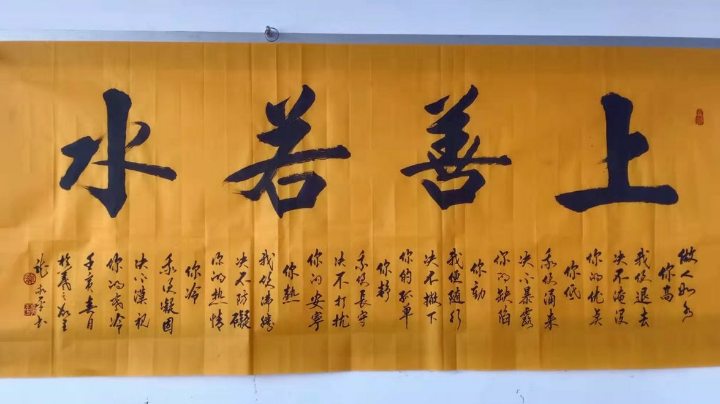 上善若水
做人如水
你高
我便退去
决不淹没
你的优美
你低
我便涌来
决不暴露
你的缺陷
你动
我便随行
决不撇下
你的孤单
你静
我便长守
决不打扰
你的安宁
你热
我便沸腾
决不防碍
你的热情
你冷
我便凝固
决不漠视
你的寒冷
壬寅春月
於羲之故里
书